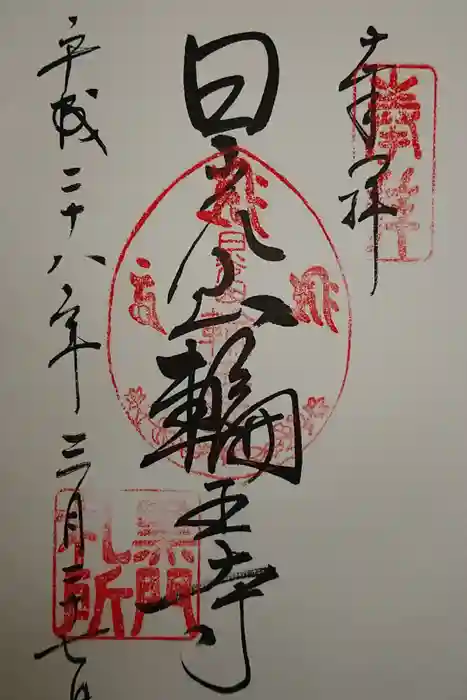 奉拝
日光山
輪王寺
平成二十八年三月二十七日
黒門
札所